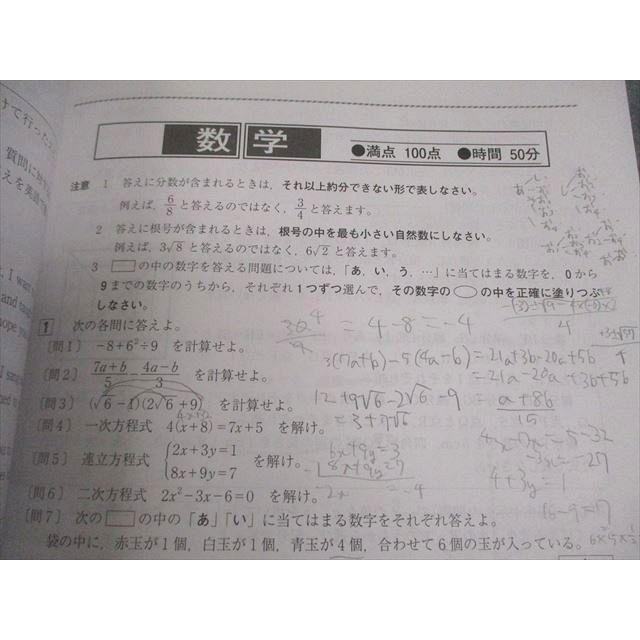 けて行った
質問に対
えを英語で
, I want
and
hope you
I
and
ned to
数学
●満点 100点 ●時間 50分
注意 1 答えに分数が含まれるときは，それ以上約分できない形で表しなさい。
例えば，6/8と答えるのではなく，3/4と答えます。
2 答えに根号が含まれるときは，根号の中を最も小さい自然数にしなさい。
例えば，3√8と答えるのではなく，6√2と答えます。
3 □の中の数字を答える問題については，「あ，い，う，…」に当てはまる数字を，0から
9までの数字のうちから，それぞれ1つずつ選んで，その数字の○の中を正確に塗りつぶ
しなさい。
1 次の各問に答えよ。
36/9 4 = 4-8 = -4
〔問1〕 -8+6²÷9 を計算せよ。
3(7a+b)-5(4a-b) = 21a+3b-20a+5b
〔問2〕 (7a+b)/5 - (4a-b)/3 を計算せよ。
= 21a-20a+3b+5b
= (a+8b)/15
〔問3〕 (√6-1)(2√6+9) を計算せよ。
12+9√6-2√6-9
= 3+7√6
〔問4〕 一次方程式 4(x+8)=7x+5 を解け。
4x-7x=5-32
-3x=-27
〔問5〕 連立方程式 {2x+3y=1 8x+9y=7 を解け。
6x+9y=3
8x+9y=7
-2x = -4
4+3y=1
16-9=7
〔問6〕 二次方程式 2x²-3x-6=0 を解け。
〔問7〕 次の□の中の「あ」「い」に当てはまる数字をそれぞれ答えよ。
袋の中に，赤玉が1個，白玉が1個，青玉が4個，合わせて6個の玉が入っている。